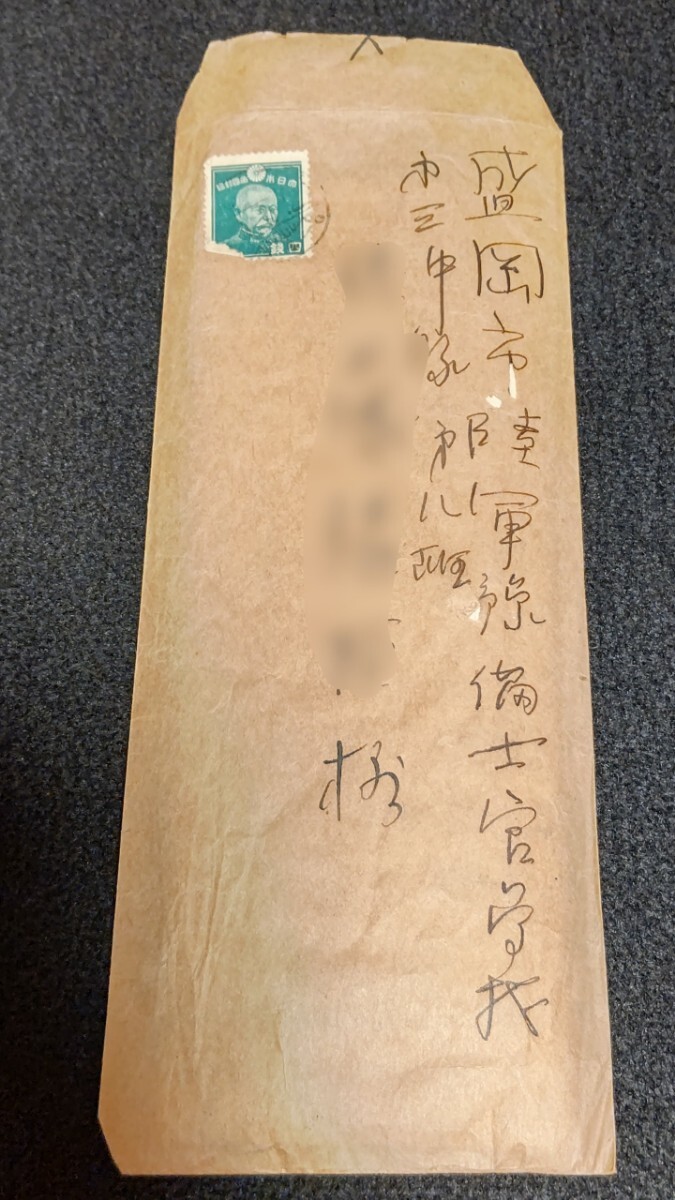 盛岡市陸軍豫備士官学校
第三中隊第八班
様
大日本帝國郵便
四銭